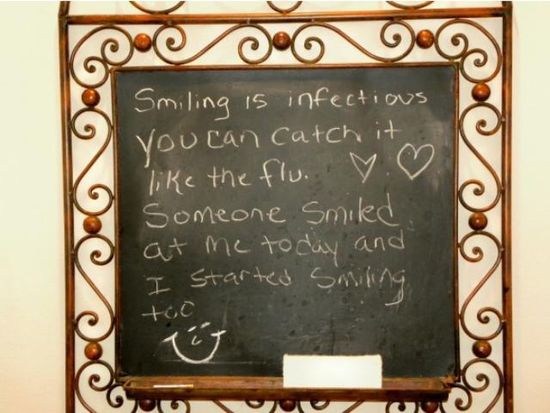 Smiling is infectious
you can catch it
like the flu.
Someone smiled
at me today and
I started smiling
too